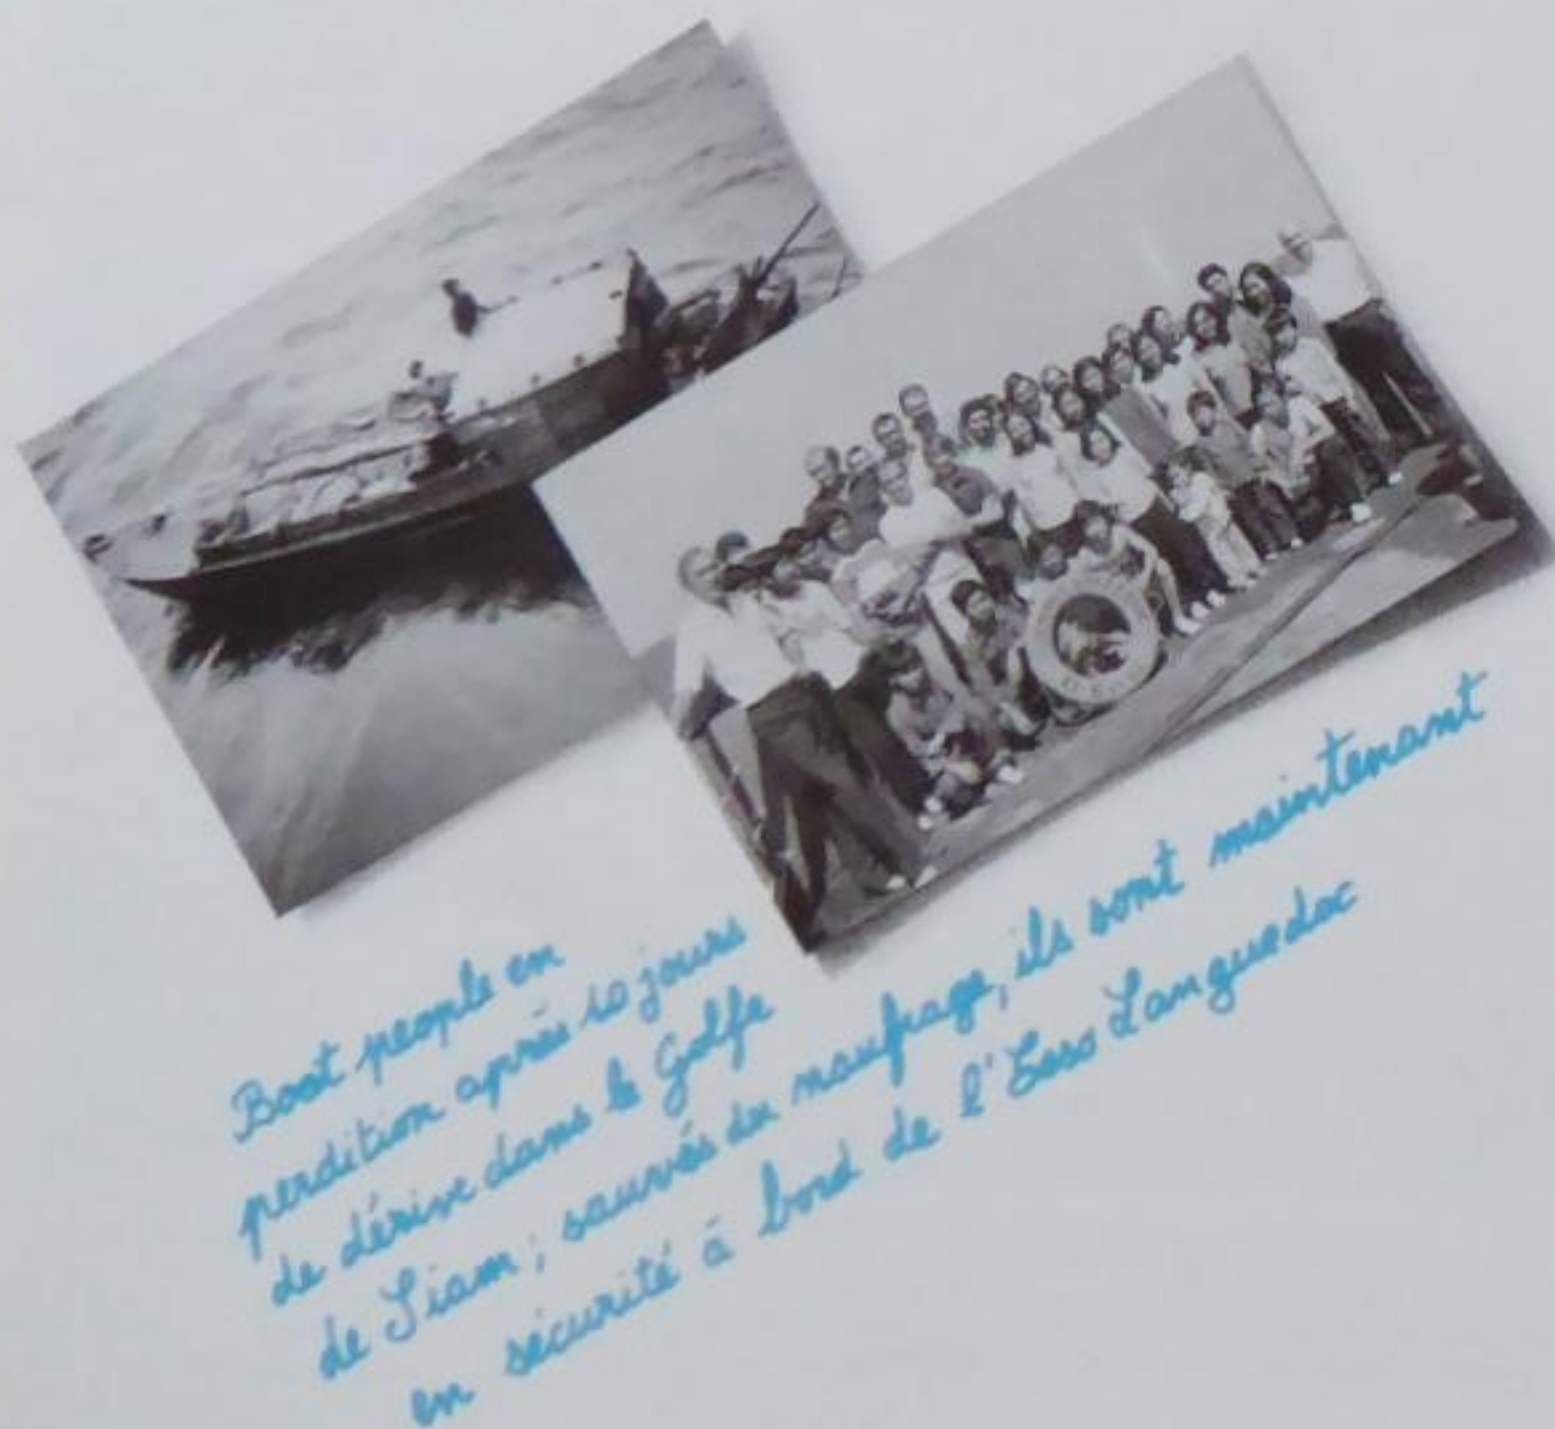 Boat people en
perdition après 10 jours
de dérive dans le Golfe
de Siam ; sauvés du naufrage, ils sont maintenant
en sécurité à bord de l'Esso Languedoc